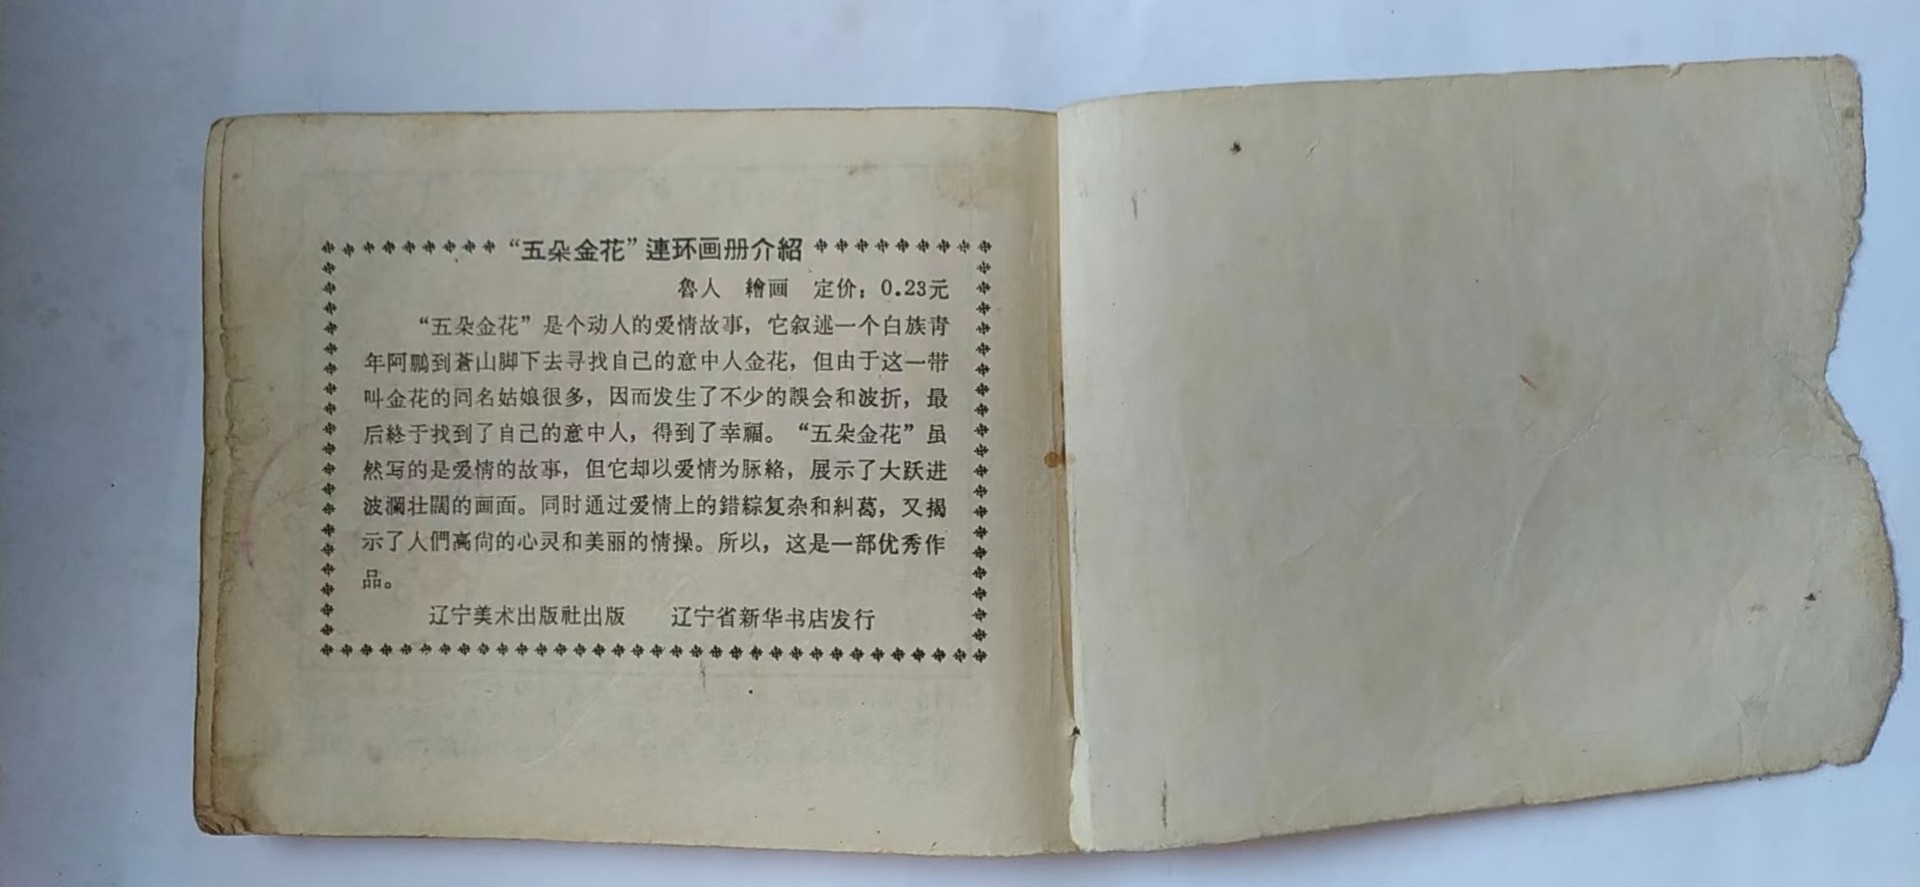 “五朵金花”連环画册介紹
魯人　繪画　定价：0.23元
“五朵金花”是个动人的爱情故事，它叙述一个白族青
年阿鵬到蒼山脚下去寻找自己的意中人金花，但由于这一带
叫金花的同名姑娘很多，因而发生了不少的誤会和波折，最
后終于找到了自己的意中人，得到了幸福。“五朵金花”虽
然写的是爱情的故事，但它却以爱情为脉絡，展示了大跃进
波瀾壮闊的画面。同时通过爱情上的錯綜复杂和糾葛，又揭
示了人們高尙的心灵和美丽的情操。所以，这是一部优秀作
品。
辽宁美术出版社出版　　辽宁省新华书店发行